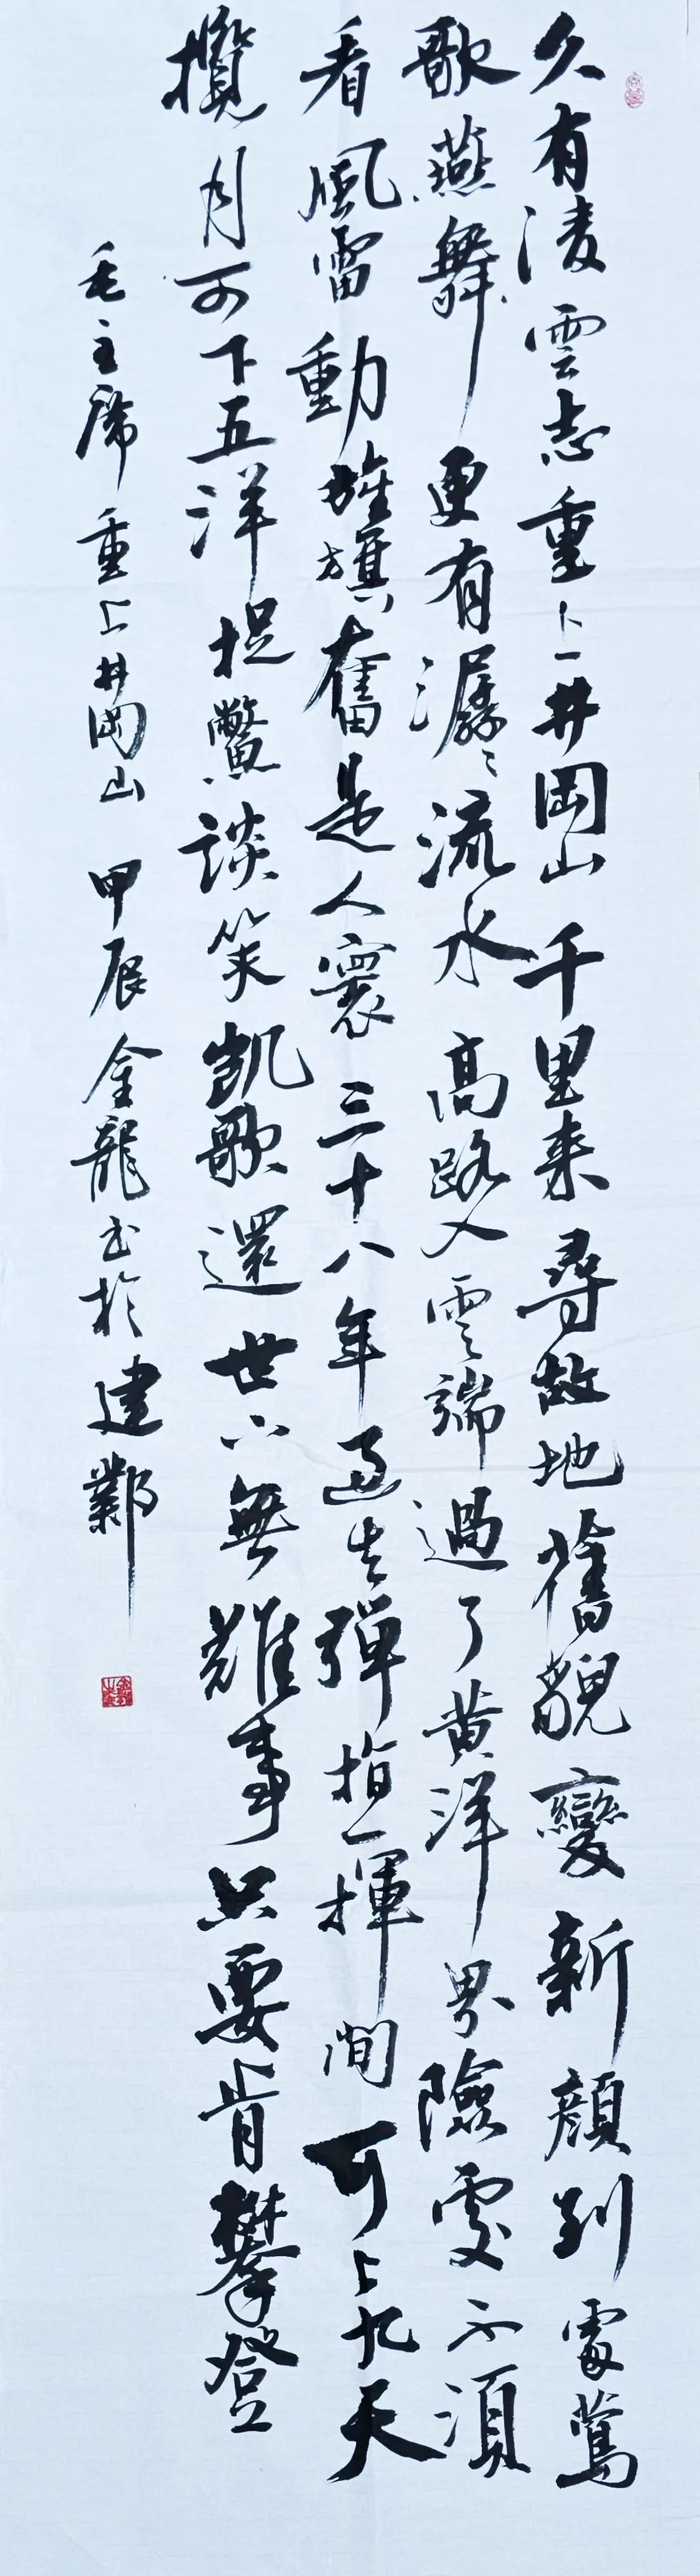 久有凌雲志重上井岡山千里来尋故地舊貌變新顔到處鶯
歌燕舞更有潺〻流水高路入雲端過了黄洋界險處不須
看風雷動旌旗奮是人寰三十八年過去彈指一揮間可上九天
攬月可下五洋捉鱉談笑凱歌還世上無難事只要肯攀登
毛主席重上井岡山 甲辰金龍书於建鄴